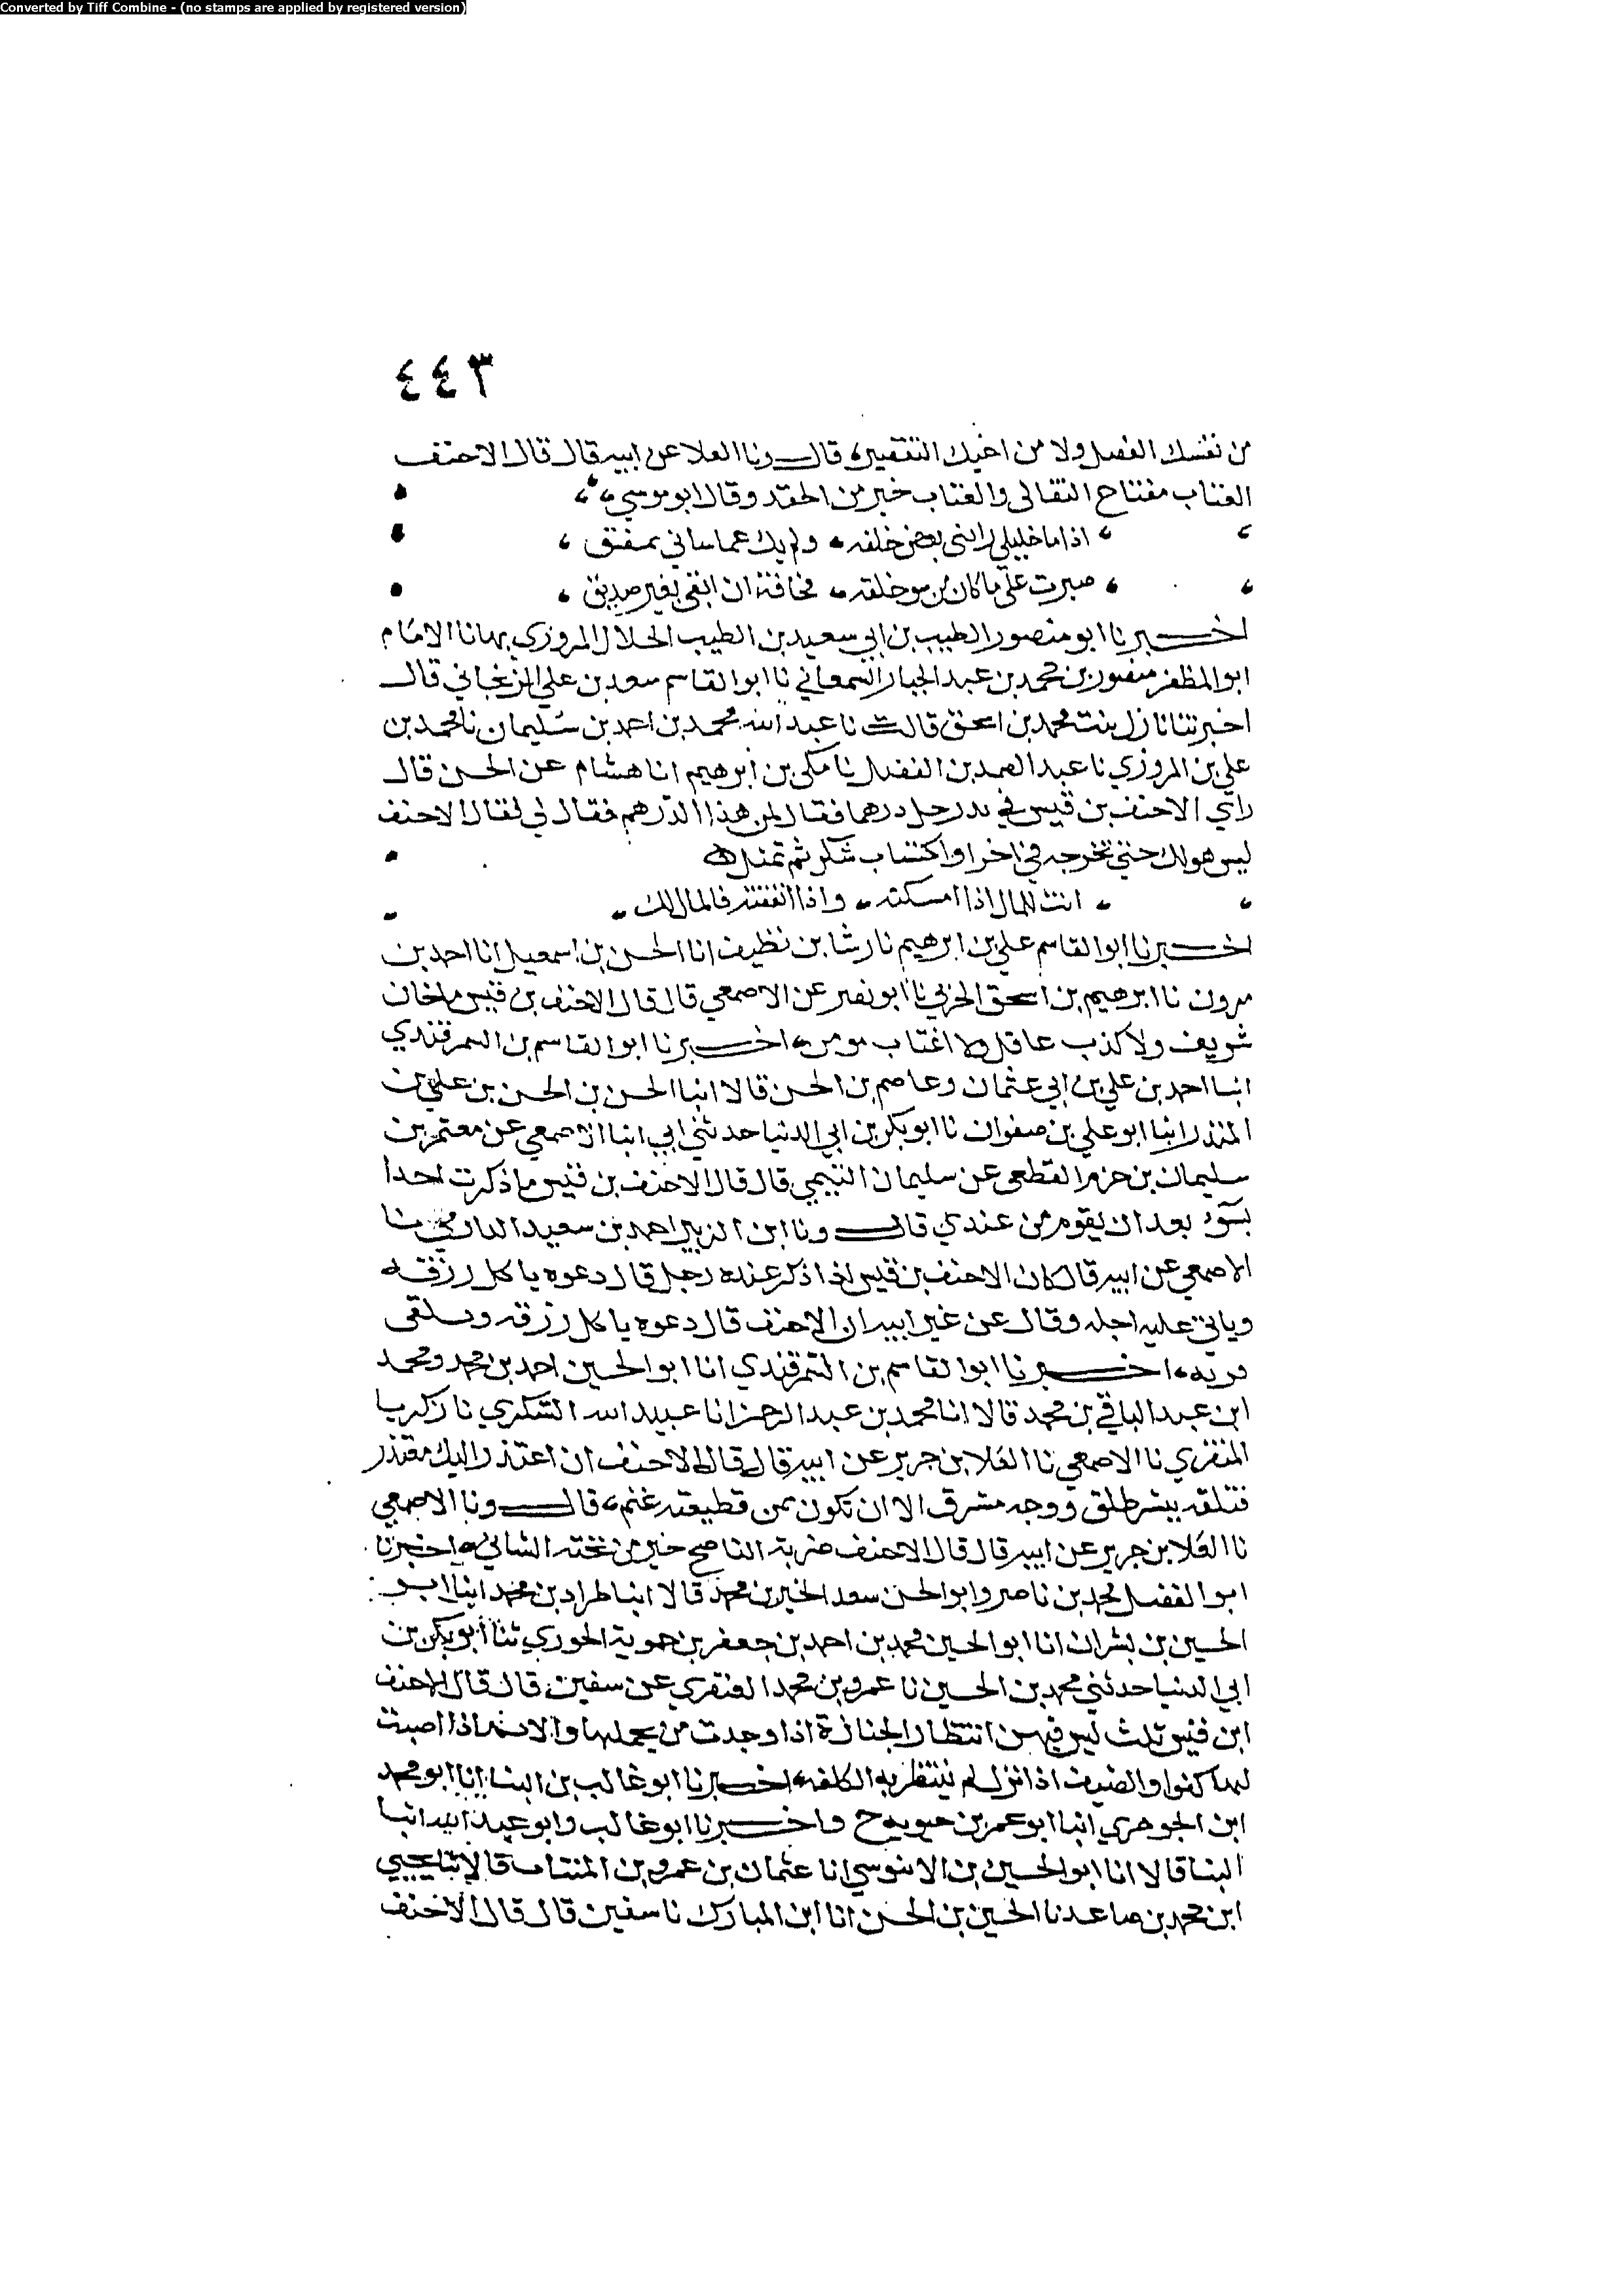 Converted by Tiff Combine - (no stamps are applied by registered version)
٤٤٣
من نفسك الفضل ولا من اخيك التقصير، قال ونا العلا عن ابيه قال قال الاحنف
العتاب مفتاح التقالى والعتاب خير من الحقد وقال ابو موسى
اذا ما خليلى رابنى بعض خلقه ولم يك عما ساني بمفيق
صبرت على ما كان من سو خلقه مخافة ان ابقى بغير صديق
اخبرنا ابو منصور الطيب بن ابي سعيد بن الطيب الخلال المروزي بها نا الامام
ابو المظفر منصور بن محمد بن عبد الجبار السمعاني نا ابو القاسم سعد بن علي الزنجاني قال
اخبرتنا نازل بنت محمد بن اسحق قالت نا عبد الله محمد بن احمد بن سليمان نا محمد بن
علي بن المروزي نا عبد الصمد بن الفضل نا مكى بن ابرهيم انا هشام عن الحسن قال
راي الاحنف بن قيس في يد رجل درهما فقال لمن هذا الدرهم فقال لي فقال الاحنف
ليس هو لك حتى تخرجه في اخر او اكتساب شكر ثم تمثل
انت للمال اذا امسكته واذا انفقته فالمال لك
اخبرنا ابو القاسم علي بن ابرهيم نا رشا بن نظيف انا الحسن بن اسمعيل انا احمد بن
مرون نا ابرهيم بن اسحق الحربي نا ابو نصر عن الاصمعي قال قال الاحنف بن قيس ما خان
شريف ولا كذب عاقل ولا اغتاب مومن، اخبرنا ابو القاسم بن السمرقندي
انبا احمد بن علي بن ابي عثمان وعاصم بن الحسن قالا انبا الحسن بن الحسن بن علي بن
المنذر انبا ابو علي بن صفوان نا ابو بكر بن ابي الدنيا حدثني ابي انبا الاصمعي عن معتمر بن
سليمان بن حزم القطعى عن سليمان التيمي قال قال الاحنف بن قيس ما ذكرت احدا
بسوء بعد ان يقوم من عندي قال ونا ابن الزبير احمد بن سعيد الدارمي نا
الاصمعي عن ابيه قال كان الاحنف بن قيس اذا ذكر عنده رجل قال دعوه ياكل رزقه
وياتي عليه اجله وقال عن غير ابيه ان الاحنف قال دعوه ياكل رزقه ويلقى
اخبرنا ابو القاسم بن السمرقندي انا ابو الحسين احمد بن محمد ومحمد
ابن عبد الباقي بن محمد قالا انا محمد بن عبد الرحمن انا عبيد الله السكري نا زكريا
المنقري نا الاصمعي نا العلا بن جرير عن ابيه قال قال الاحنف ان اعتذر اليك معتذر
فتلقه ببشر طلق ووجه مشرق الا ان تكون ممن قطيعته غنم، قال ونا الاصمعي
نا العلا بن جرير عن ابيه قال قال الاحنف ضربة الناصح خير من تحية الشاني، اخبرنا
ابو الفضل محمد بن ناصر وابو الحسن سعد الخير بن محمد قالا انبا طراد بن محمد انبا ابو
الحسين بن بشران انا ابو الحسين محمد بن احمد بن جعفر بن حموية الحوري ثنا أبو بكر بن
ابي الدنيا حدثني محمد بن الحسين نا عمرو بن محمد العنقري عن سفين قال قال الاحنف
ابن قيس ثلث ليس فيهن انتظار الجنازة اذا وجدت من يحملها والايم اذا اصبت
لها كفوا والضيف اذا نزل لم ينتظر به الكلفه، اخبرنا ابو غالب بن البنا انا ابو محمد
ابن الجوهري انبا ابو عمر بن حيويه ح واخبرنا ابو غالب وابو عبد الله انبا
البنا قالا انا ابو الحسين بن الابنوسي انا عثمان بن عمرو بن المنتاب قالا نا يحيى
ابن محمد بن صاعد نا الحسين بن الحسن انا ابن المبارك نا سفين قال قال الاحنف